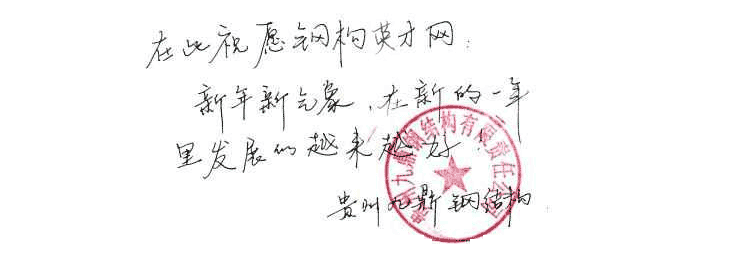 在此祝愿钢构英才网:
新年新气象,在新的一年
里发展的越来越好
贵州九鼎钢结构
贵州九鼎钢结构有限责任公司